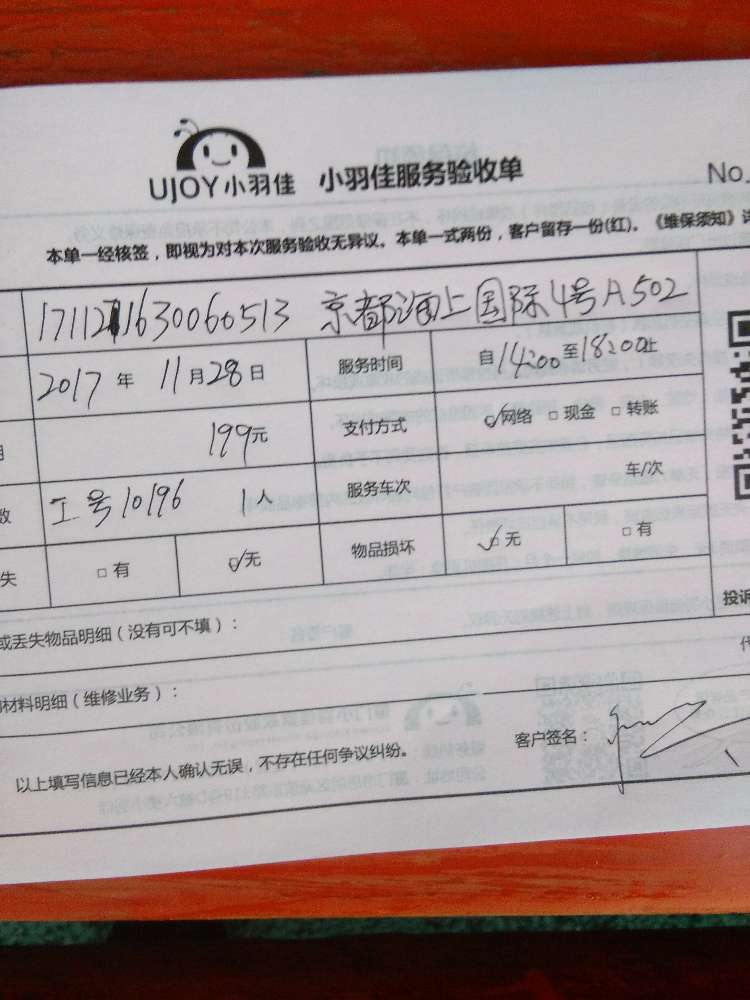 UJOY小羽佳 小羽佳服务验收单
No.
本单一经核签，即视为对本次服务验收无异议。本单一式两份，客户留存一份(红)。《维保须知》
京都海上国际4号A502
2017 年 11月28日 服务时间 自14:00至18:00止
199元 支付方式 ☑网络 □现金 □转账
数 工号10196 1人 服务车次 车/次
失 □有 ☑无 物品损坏 ☑无 □有
投诉
或丢失物品明细（没有可不填）：
材料明细（维修业务）：
以上填写信息已经本人确认无误，不存在任何争议纠纷。 客户签名：